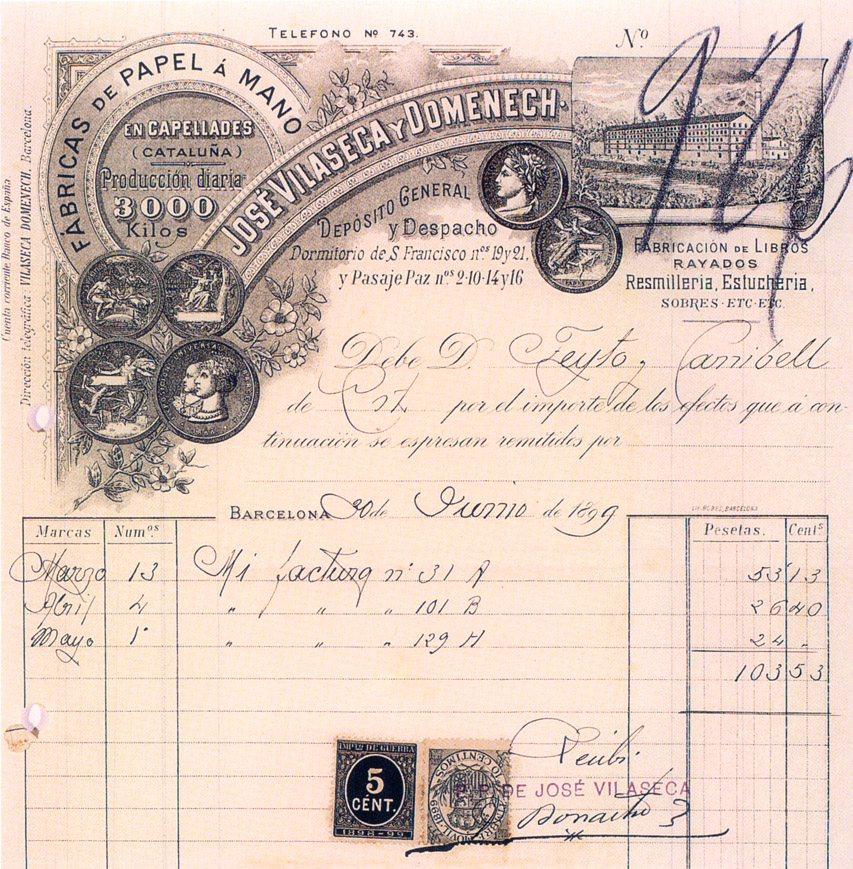 TELEFONO Nº 743.
Nº
FÁBRICAS DE PAPEL Á MANO
EN CAPELLADES
(CATALUÑA)
Producción diaria
3000
Kilos
JOSÉ VILASECA Y DOMENECH.
DEPÓSITO GENERAL
y DESPACHO
Dormitorio de S. Francisco nos 19 y 21,
y Pasaje Paz nos 2-10-14 y 16
FABRICACIÓN DE LIBROS
RAYADOS
Resmilleria, Estucheria,
SOBRES-ETC-ETC.
Cuenta corriente Banco de España.
Dirección telegráfica: VILASECA DOMENECH. Barcelona.
Debe D. Feyto y Canibell
de por el importe de los efectos que á con-
tinuación se espresan remitidos por
BARCELONA 30 de Junio de 1899
Marcas Numos. Pesetas. Cents
Marzo 13 Mi factura nº 31 A 53 13
Abril 4 " " " 101 B 26 40
Mayo 1º " " " 129 H 24 "
103 53
IMPTO DE GUERRA
5
CENT.
1898-99
10 CENTIMOS
Recibí
P.P. DE JOSÉ VILASECA